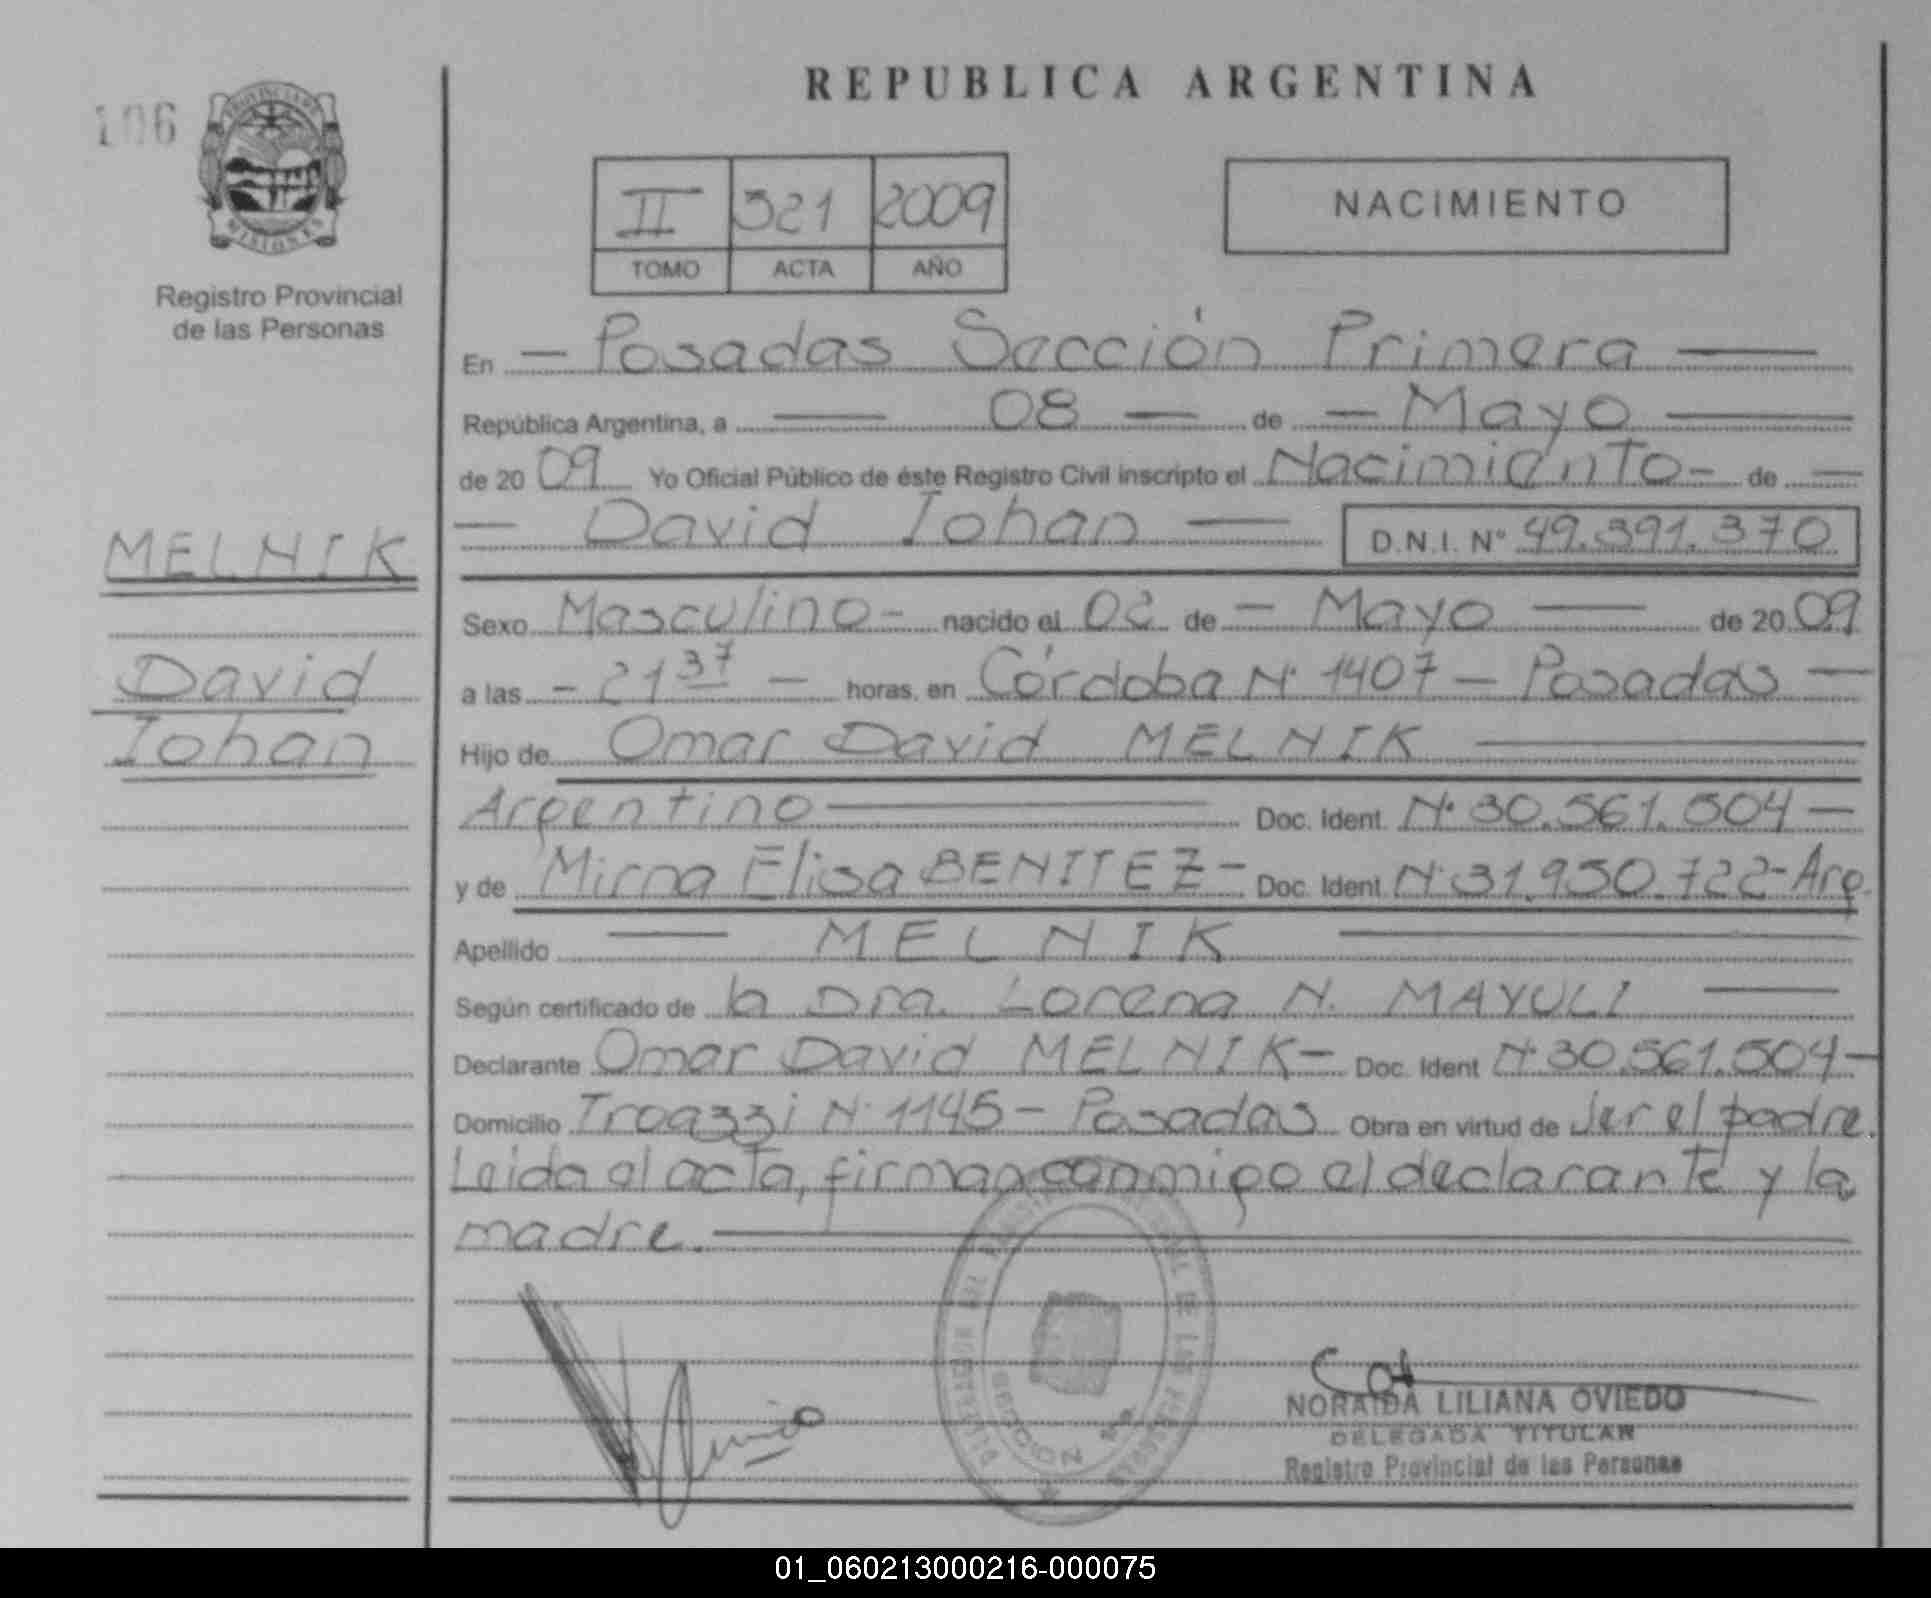 REPUBLICA ARGENTINA
106
PROVINCIA DE
MISIONES
Registro Provincial
de las Personas
II 321 2009
TOMO ACTA AÑO
NACIMIENTO
En — Posadas Sección Primera —
República Argentina, a — 08 — de — Mayo —
de 2009 Yo Oficial Público de éste Registro Civil inscripto el Nacimiento - de —
— David Iohan — D.N.I. N° 49.391.370
MELNIK
David
Iohan
Sexo Masculino - nacido el 02 de — Mayo — de 2009
a las - 21 37 — horas, en Córdoba N° 1407 — Posadas —
Hijo de Omar David MELNIK —
Argentino — Doc. Ident. N° 30.561.504 —
y de Mirna Elisa BENITEZ - Doc. Ident. N° 31.950.722 - Arg.
Apellido — MELNIK —
Según certificado de la Dra. Lorena N. MAYULI —
Declarante Omar David MELNIK - Doc. Ident N° 30.561.504 —
Domicilio Troazzi N° 1145 - Posadas Obra en virtud de ser el padre.
Leida el acta, firman conmigo el declarante y la
madre. —
NORAIDA LILIANA OVIEDO
DELEGADA TITULAR
Registro Provincial de las Personas
01_060213000216-000075